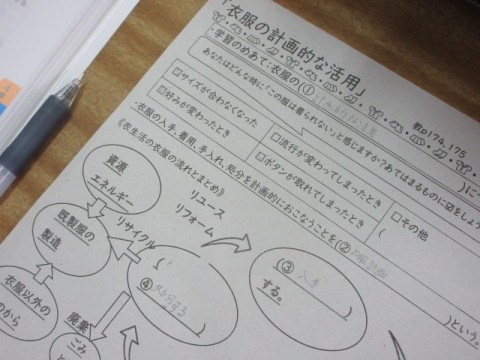 「衣服の計画的な活用」
教p174、175
・学習のめあて：衣服の(①
)に
あなたはどんな時に「この服は着られない」と感じますか？あてはまるものに☑をしよう
□サイズが合わなくなった
□流行が変わってしまったとき
□その他
□好みが変わったとき
□ボタンが取れてしまったとき
(
・衣服の入手、着用、手入れ、処分を計画的におこなうことを(②
)という。
《衣生活の衣服の流れとまとめ》
資源
エネルギー
リユース
リフォーム
リサイクル
既製服の
製造
(③ 入手
)
する。
(
④ 処分する
)
衣服以外の
のから
廃棄
ごみ